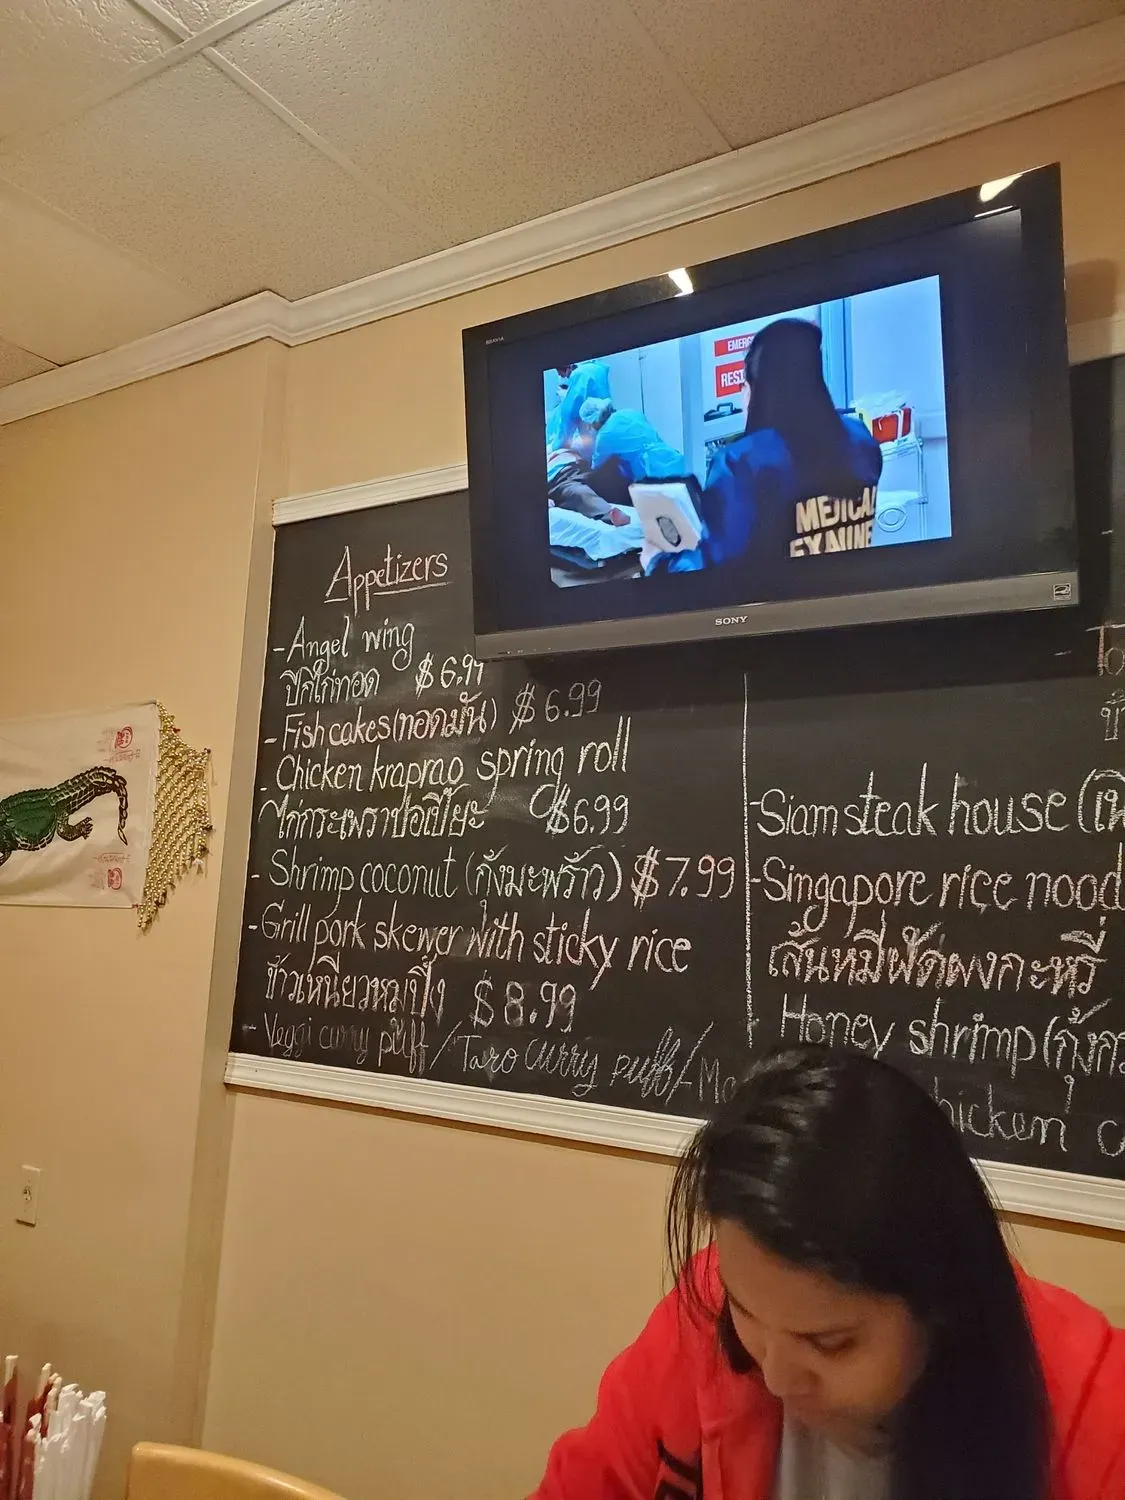 BRAVIA
EMERG
REST
MEDICAL
EXAMINE
SONY
Appetizers
- Angel wing
ปีกไก่ทอด $6.99
- Fish cakes (ทอดมัน) $6.99
- Chicken kraprao spring roll
ไก่กระเพราปอเปี๊ยะ $6.99
- Shrimp coconut (กุ้งมะพร้าว) $7.99
- Grill pork skewer with sticky rice
ข้าวเหนียวหมูปิ้ง $8.99
- Veggi curry puff / Taro curry puff /
- Siam steak house (
- Singapore rice nood
เส้นหมี่ผัดผงกะหรี่
Honey shrimp (กุ้ง
hicken c